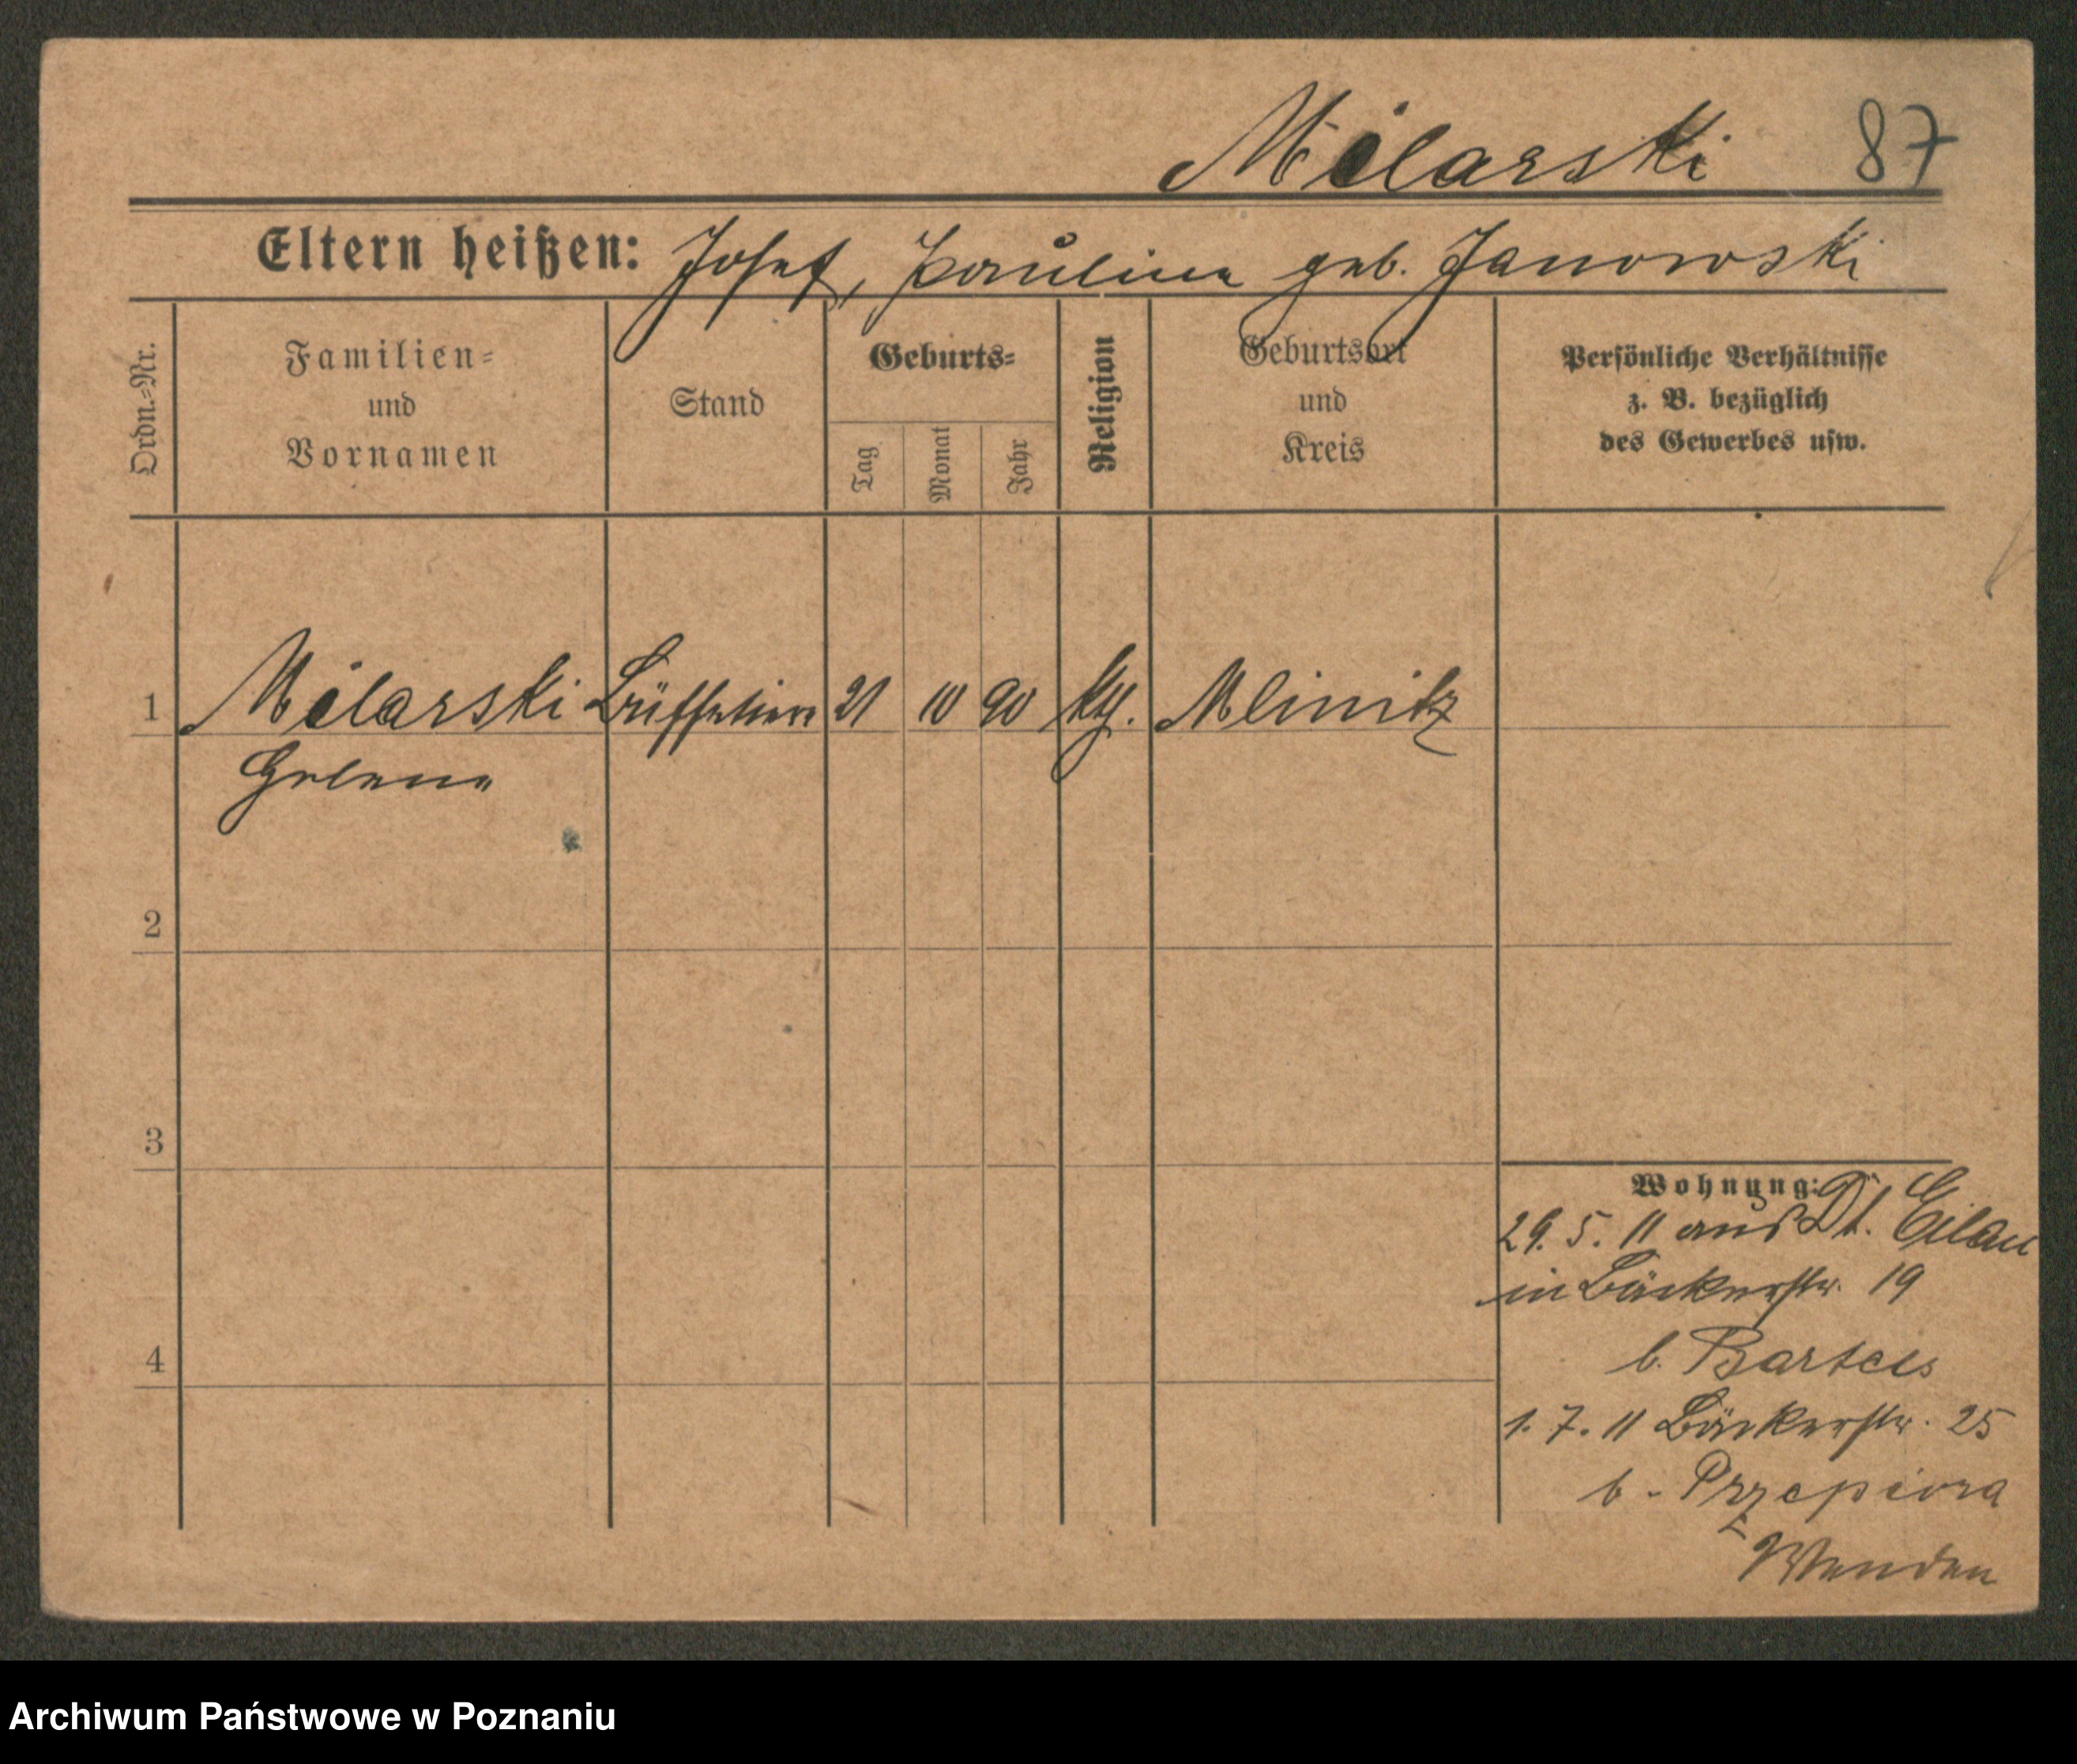 Milarski 87
Eltern heißen: Josef, Pauline geb. Janowski
Ordn.=Nr.
Familien=
und
Vornamen
Stand
Geburts=
Tag
Monat
Jahr
Religion
Geburtsort
und
Kreis
Persönliche Verhältnisse
z. B. bezüglich
des Gewerbes usw.
1 Milarski Büffetiere 21 10 90 kth. Mlinitz
Helene
2
3
4
Wohnung:
29. 5. 11 aus Dt. Eilau
in Bäckerstr. 19
b. Bartels
1. 7. 11 Bäckerstr. 25
b. Przepiora
Wenden
Archiwum Państwowe w Poznaniu